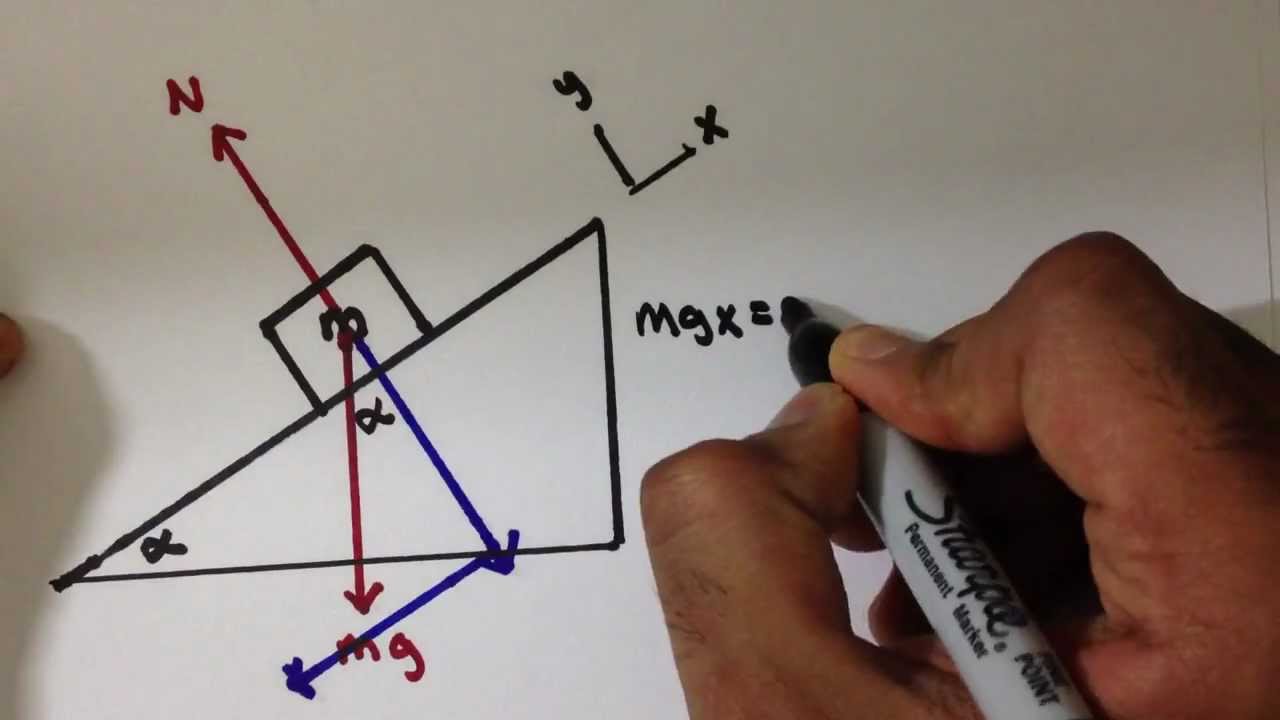 N
y
x
m
mgx=
α
α
mg
Sharpie®
Permanent Marker
FINE POINT